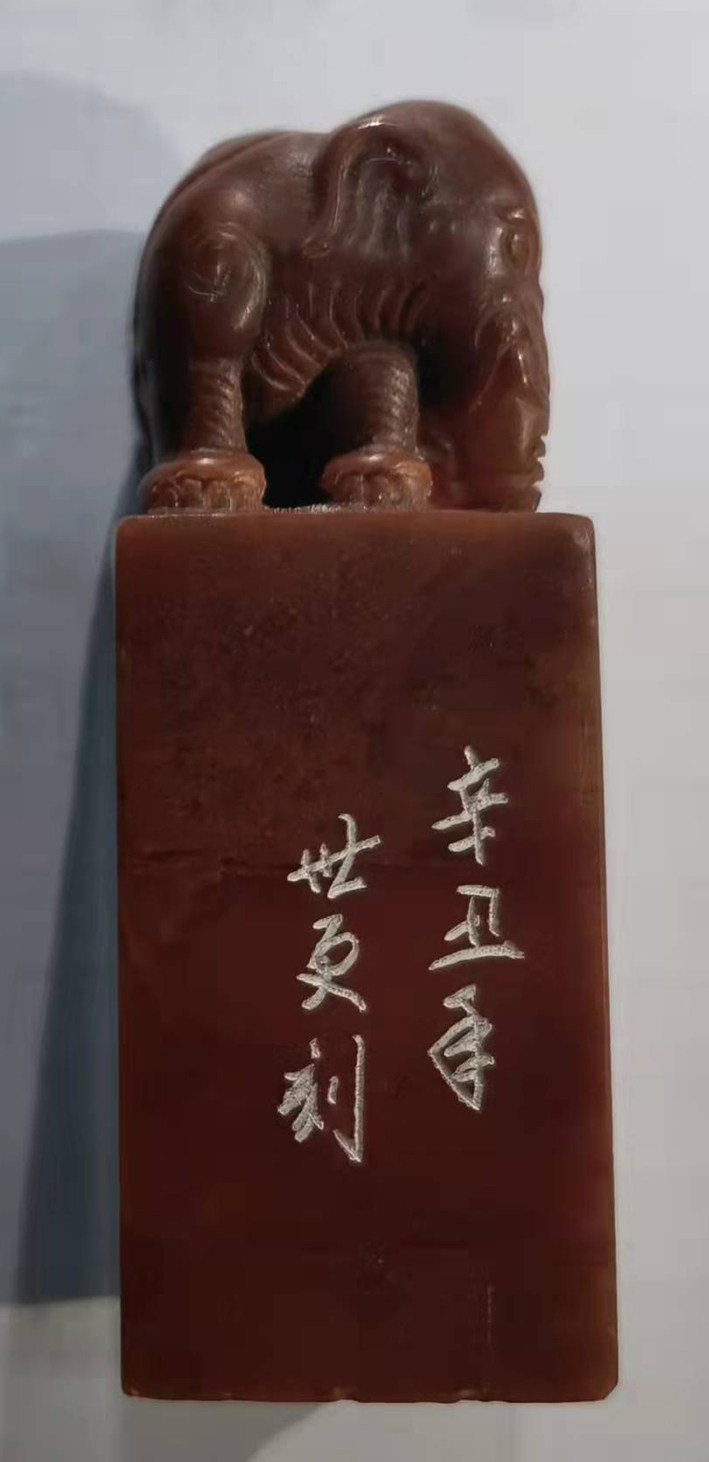 辛丑年
世更刻